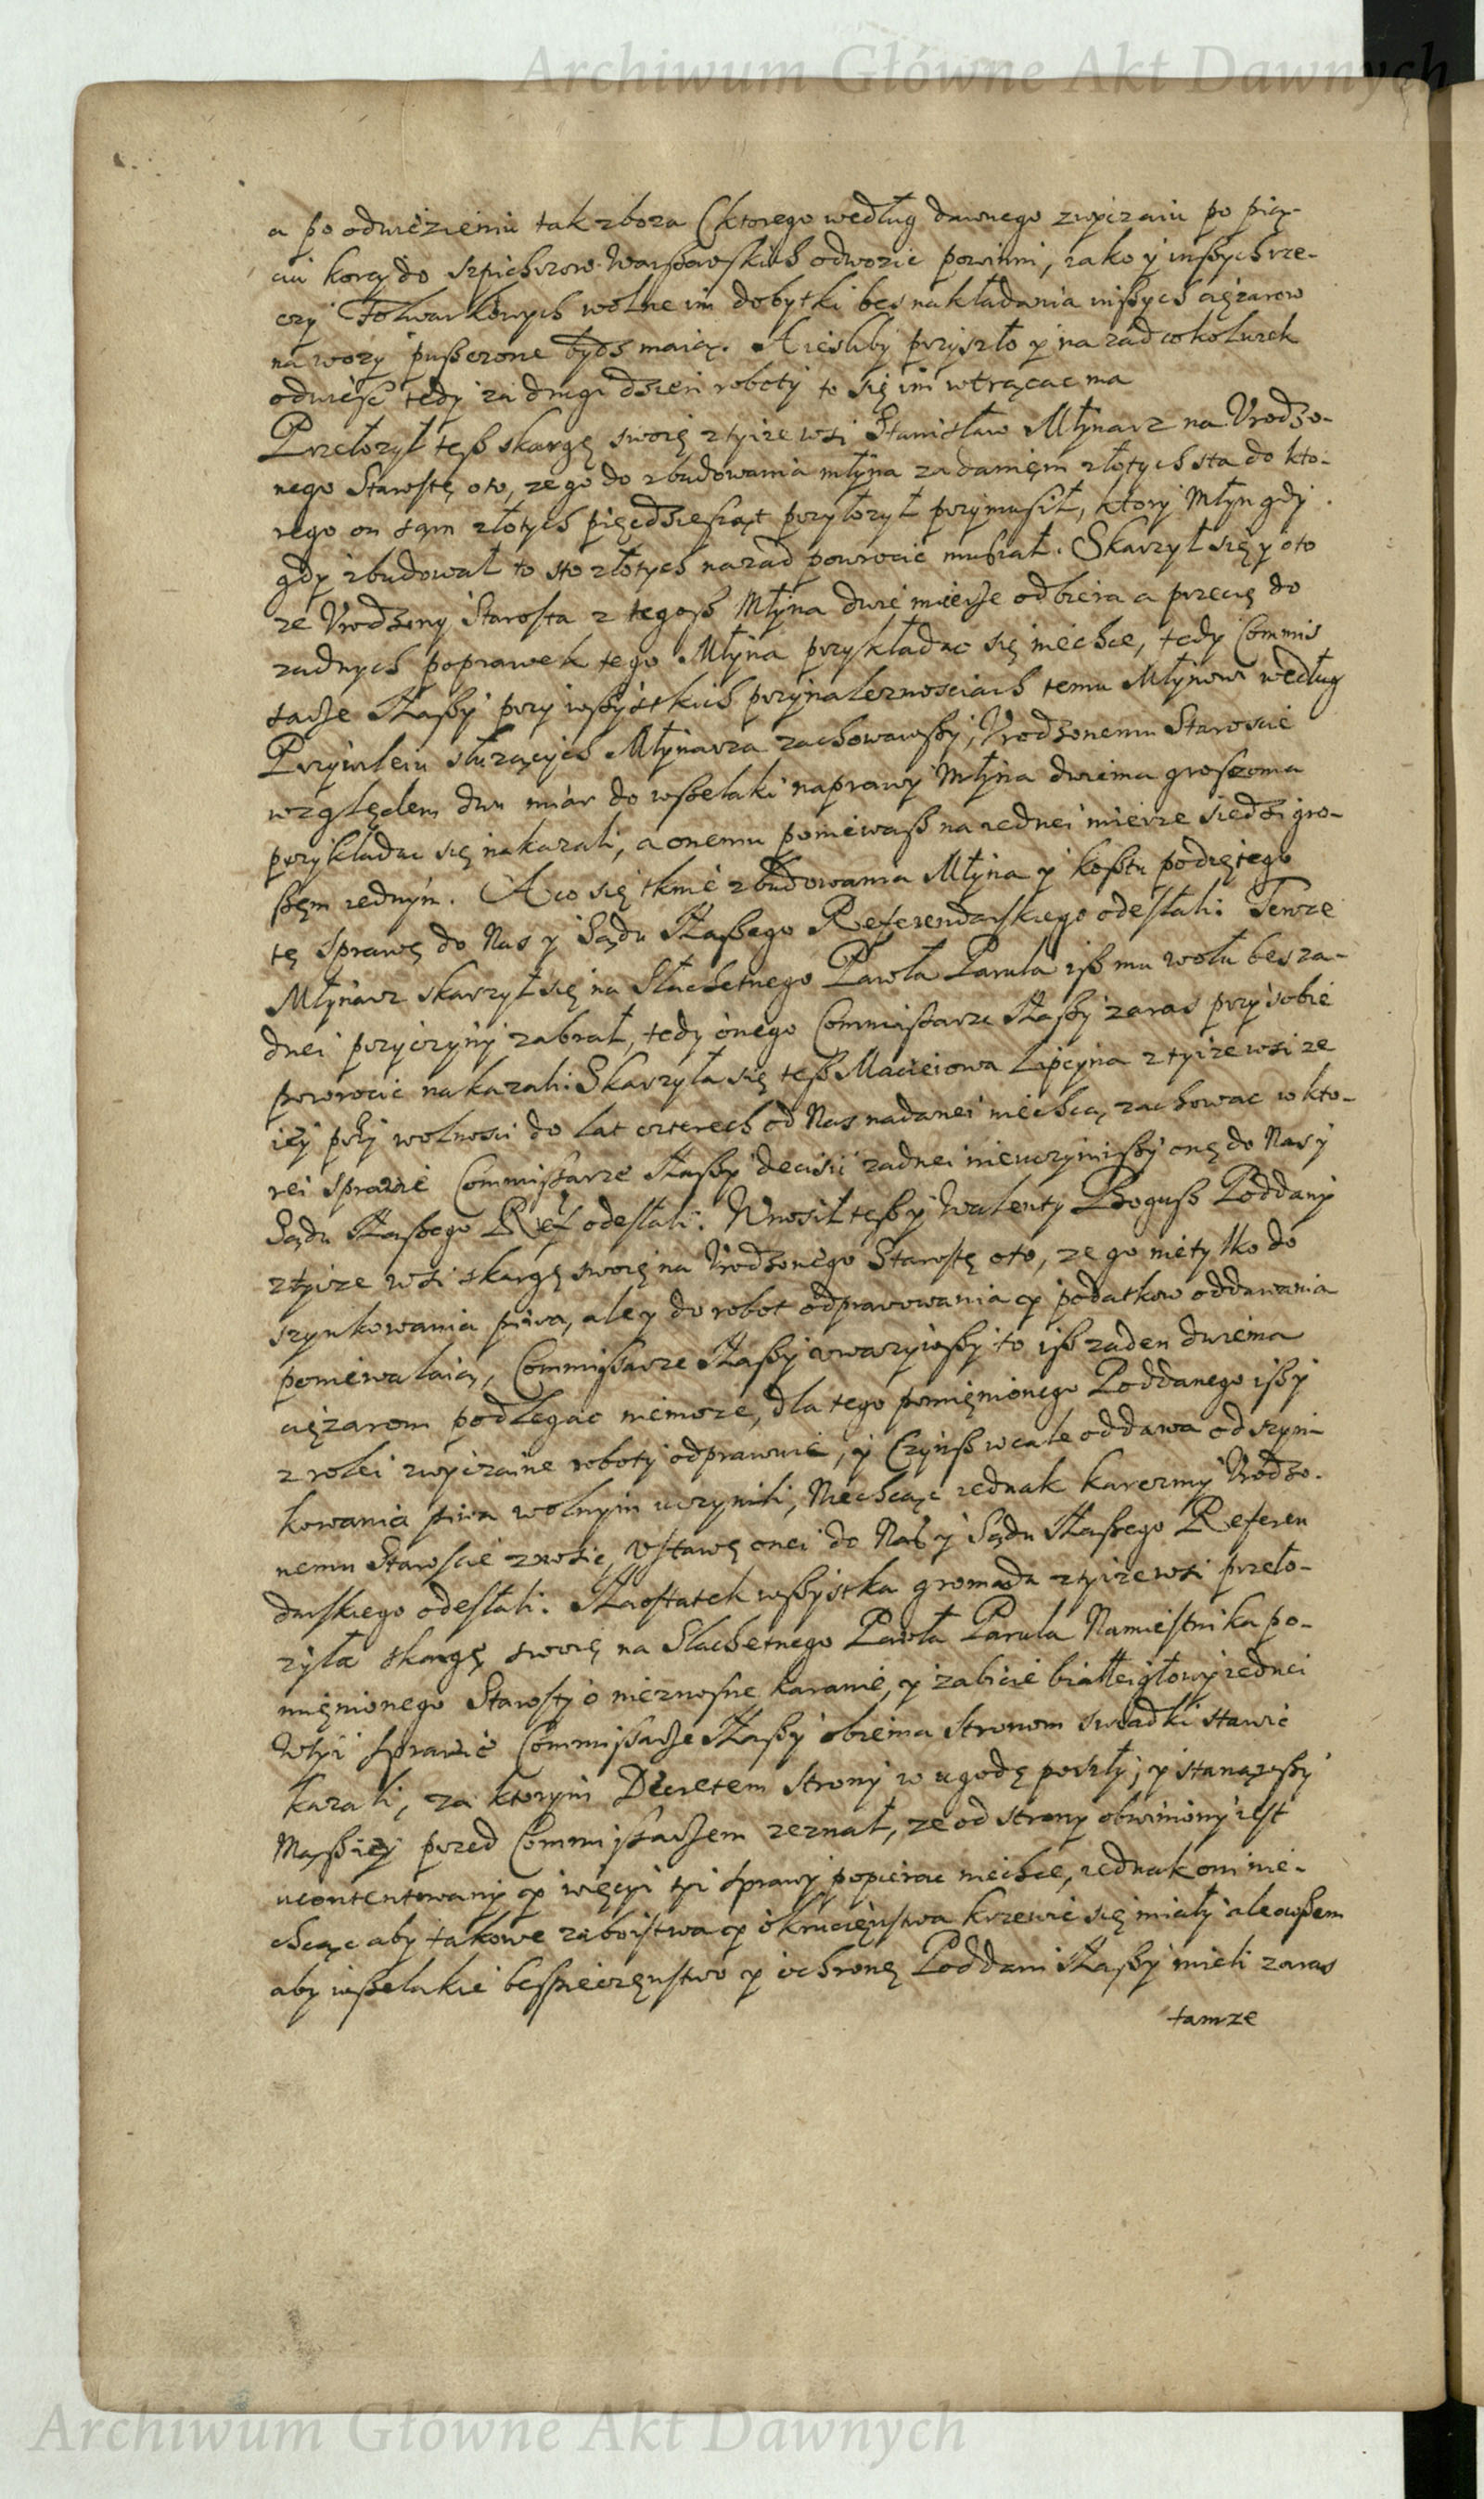 Archiwum Główne Akt Dawnych
a po odwiezieniu tak zboza (ktorego według dawnego zwyczaiu po pią-
ciu korcy do szpichrzow Warszawskich odwozic powinni, iako y inszych rze-
czy Folwarkowych wolne im dobytki bes nakładania inszych cięzarow
na wozy puszczone bydz maią. A iesliby przyszło y na zad co kolwek
odwieść tedy za drugi dzien roboty to się im wtrącac ma
Przełozył tesz skargę swoię z tyize wsi Stanisław Młynarz na Vrodzo-
nego Starostę oto, ze go do zbudowania młyna za danięm złotych sta do kto-
rego on sąm złotych pięcdziesiąt przyłozył przymusił, ktory Młyn gdy
gdy zbudował to sto złotych nazad powrocic musiał. Skarzył się y oto
ze Vrodzony Starosta z tegosz Młyna dwie mierze odbiera a przecię do
zadnych poprawek tego Młyna przykładac się niechce, tedy Commis
sarze Naszy przy wszystkich przynaleznosciach temu Młynowi według
Przywileiu słuzących Młynarza zachowawszy, Vrodzonemu Staroscie
względem dwu miar do wszelaki naprawy Młyna dwiema groszoma
przykładac się nakazali, a onemu poniewasz na iednei mierze siedzi gro-
szęm iednym. A co się tknie zbudowania Młyna y kosztu podiętego
tę sprawę do Nas y Sądu Naszego Referendarskiego odesłali. Tenze
Młynarz skarzył się na Slachetnego Pawła Parula isz mu wołu bes za-
dnei przyczyny zabrał, tedy onego Commissarze Naszy zaras przy sobie
powrocic nakazali. Skarzyła się tesz Macieiowa Lipcyna z tyize wsi ze
iey przy wolnosci do lat czterech od Nas nadanei niechcą zachowac w kto-
rei sprawie Commissarze Naszy decisii zadnei nieuczyniwszy onę do Nas y
Sądu Naszego Ref odesłali. Wnosił tesz y Walenty Bogusz Poddany
z tyize wsi skargę swoię na Vrodzonego Starostę oto, ze go nietylko do
szynkowania piwa, ale y do robot odprawowania y podatkow oddawania
poniewalaią, Commissarze Naszy uwazywszy to isz zaden dwiema
cięzarom podlegac niemoze, dla tego pomięnionego Poddanego iszy
z rolei zwyczaine roboty odprawuie, y Czynsz wcale oddawa od szyn-
kowania piwa wolnym uczynili, Niechcąc iednak karczmy Vrodzo-
nemu Staroscie znosic, Vstawę onei do Nas y Sądu Naszego Referen
darskiego odesłali. Naostatek wszystka gromada z tyize wsi przeło-
zyła skargę swoię na Slachetnego Pawła Parula Namiestnika po-
mięnionego Starosty o nieznosne karanie, y zabicie białleigłowy iednei
W tyi sprawie Commissarze Naszy obiema stronom swiadki stawic
kazali, za ktorym Decretem strony w ugodę poszły, y stanąwszy
Mąsz iey przed Commissarzem zeznał, ze od strony obwiniony iest
ucontentowany y więcyi tyi sprawy popierac niechce, iednak oni nie-
chcąc aby takowe zaboistwa y okrucięnstwa krzewic się miały ale owszem
aby wszelakie bespieczęnstwo y ochronę Poddani Naszy mieli zaras
tamze
Archiwum Główne Akt Dawnych